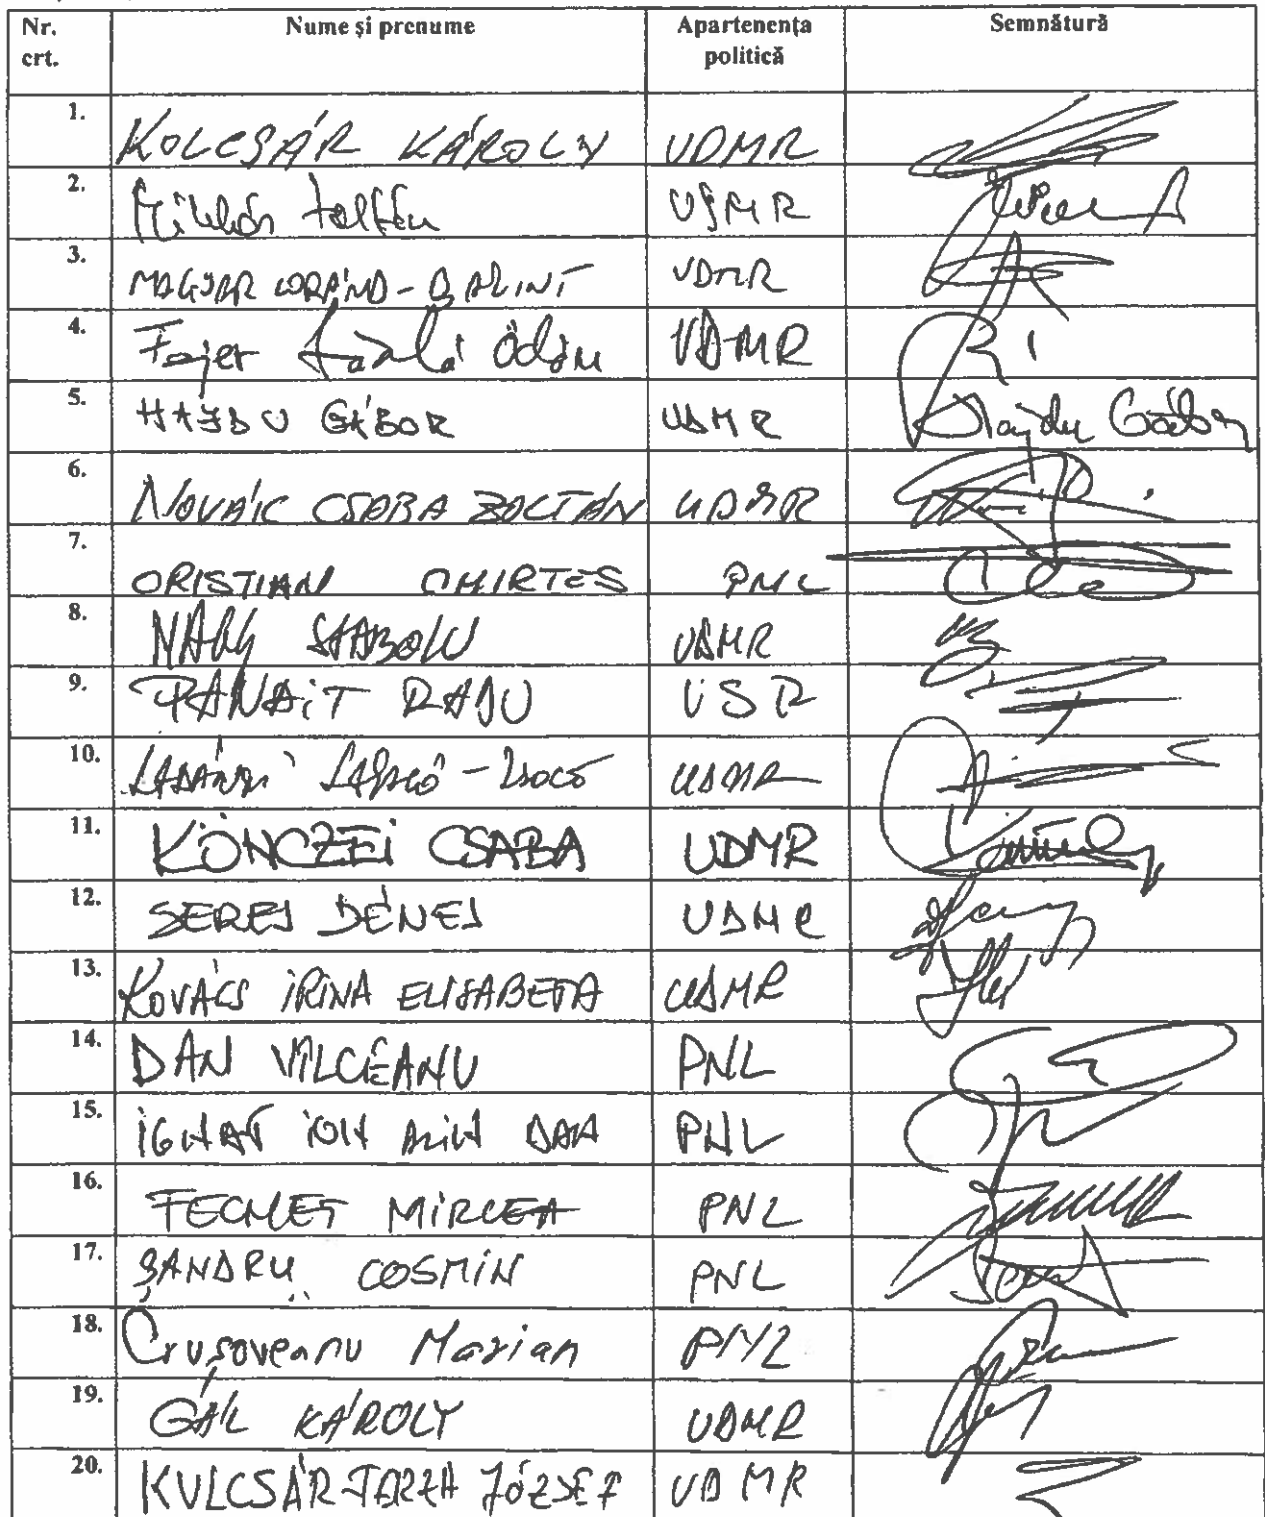 Nr. crt. Nume și prenume Apartenența politică Semnătură
1. KOLCSÁR KÁROLY UDMR
2. Miklós Zoltán UDMR
3. MAGYAR LORÁND-BÁLINT UDMR
4. Fejér László Ödön UDMR
5. HAJDU GÁBOR UDMR Hajdu Gábor
6. NOVÁK CSABA ZOLTÁN UDMR
7. CRISTIAN CHIRTES PNL
8. NAGY SZABOLCS UDMR
9. PANAIT RADU USR
10. LADÁNYI LÁSZLÓ-ZSOLT UDMR
11. KÖNCZEI CSABA UDMR
12. SERES DÉNES UDMR
13. KOVÁCS IRINA ELISABETA UDMR
14. DAN VÎLCEANU PNL
15. IGNAT ION ALIN DAN PNL
16. FECHET MIRCEA PNL
17. ȘANDRU COSMIN PNL
18. Crușoveanu Marian PNL
19. GÁL KÁROLY UDMR
20. KULCSÁR-TERZA JÓZSEF UDMR